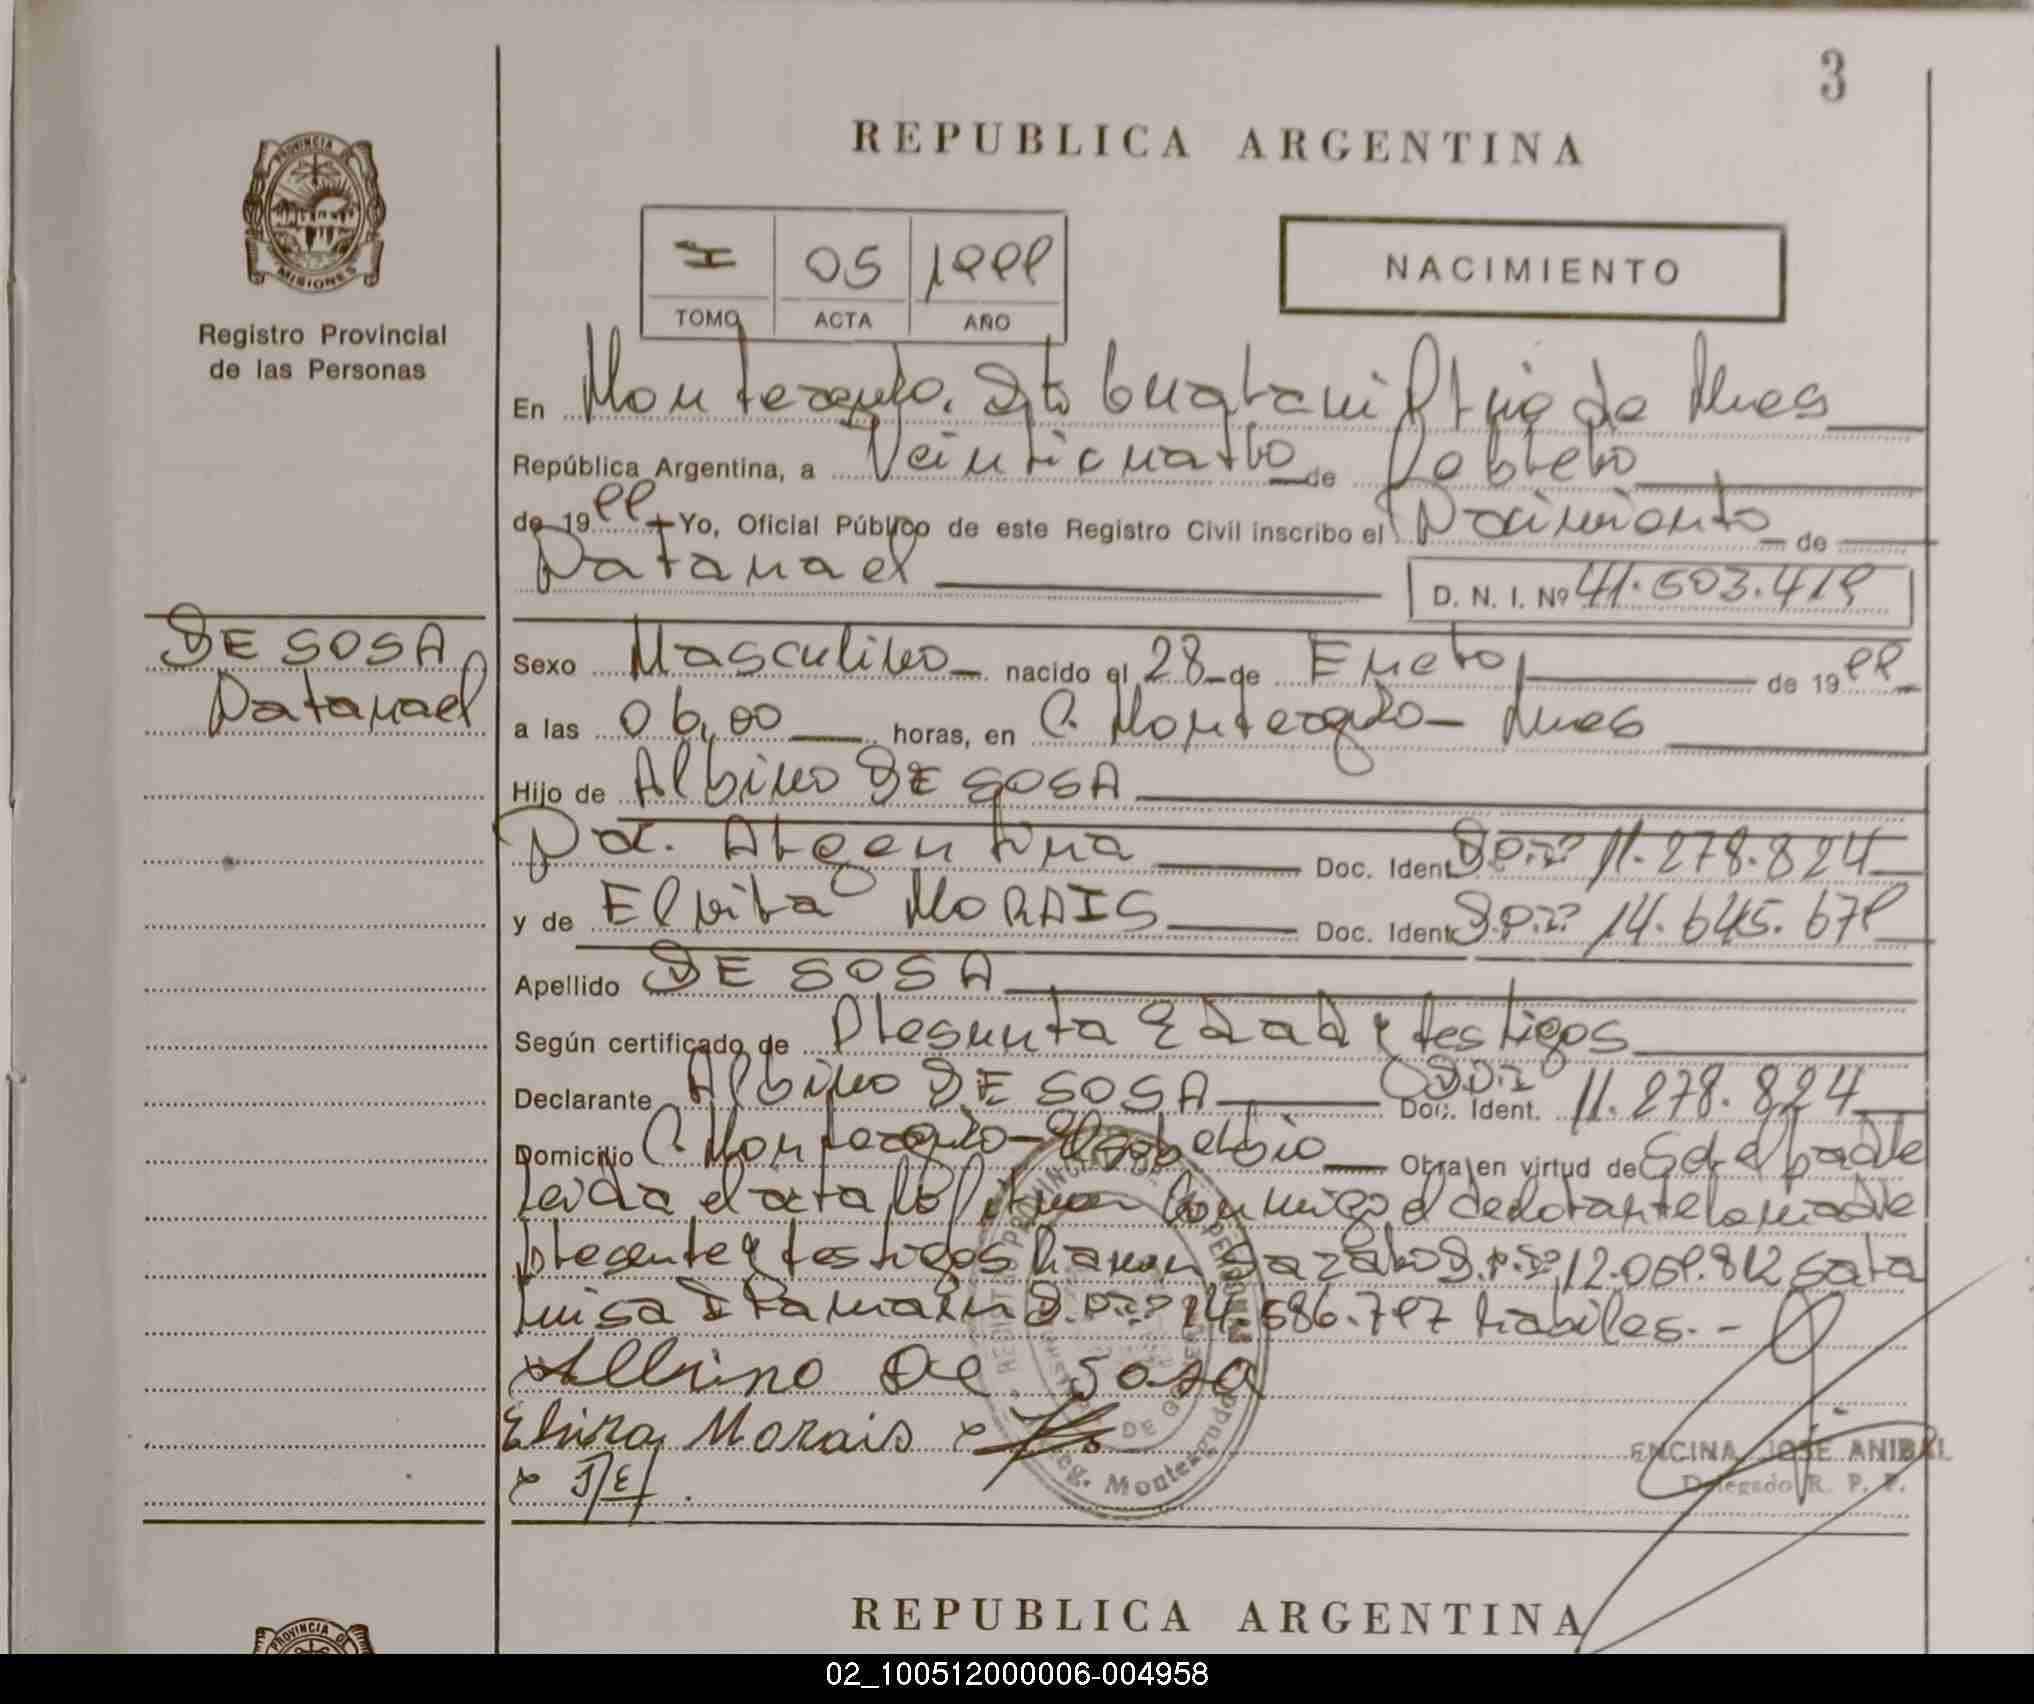 3
REPUBLICA ARGENTINA
PROVINCIA DE
MISIONES
Registro Provincial
de las Personas
I 05 1999
TOMO ACTA AÑO
NACIMIENTO
En Monteagudo, Dpto Guaraní Pcia de Mnes
República Argentina, a Veinticuatro de Febrero
de 1999 Yo, Oficial Público de este Registro Civil inscribo el Nacimiento de
Natanael D. N. I. Nº 41.503.419
DE SOSA
Natanael
Sexo Masculino nacido el 28 de Enero de 1999
a las 06,00 horas, en C. Monteagudo - Mnes
Hijo de Albino DE SOSA
Na. Argentina Doc. Ident. D.N.Iº 11.278.824
y de Elvira MORAIS Doc. Ident. D.N.Iº 14.645.679
Apellido DE SOSA
Según certificado de Presunta Edad y testigos
Declarante Albino DE SOSA Doc. Ident. D.N.Iº 11.278.824
Domicilio C. Monteagudo - Obra en virtud de Ser el padre
Leida el acta la firman conmigo el declarante la madre
presente y testigos D.N.Iº 12.059.812 Sara
Luisa D.N.Iº 14.586.797 habiles.-
Albino De Sosa
Elvira Morais
ENCINA JOSE ANIBAL
Delegado R. P. P.
REPUBLICA ARGENTINA
PROVINCIA DE
02_100512000006-004958